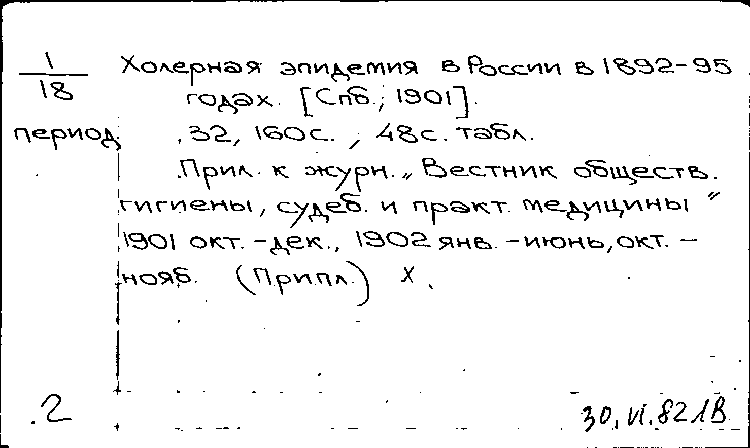 1/18 Холерная эпидемия в России в 1892-95
годах. [Спб., 1901].
период. 32, 160 с., 48 с. табл.
Прил. к журн. „Вестник обществ.
гигиены, судеб. и практ. медицины"
1901 окт.-дек., 1902 янв.-июнь, окт.-
нояб. (Припл.) X.
.2
30.VI.82 1В